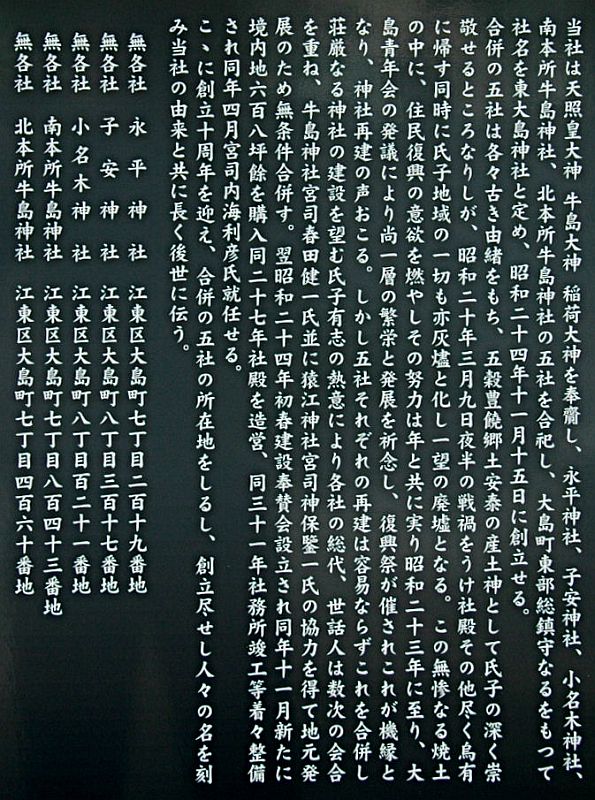 当社は天照皇大神 牛島大神 稲荷大神を奉齋し、永平神社、子安神社、小名木神社、
南本所牛島神社、北本所牛島神社の五社を合祀し、大島町東部総鎮守なるをもつて
社名を東大島神社と定め、昭和二十四年十一月十五日に創立せる。
合併の五社は各々古き由緒をもち、五穀豊饒郷土安泰の産土神として氏子の深く崇
敬せるところなりしが、昭和二十年三月九日夜半の戦禍をうけ社殿その他尽く烏有
に帰す同時に氏子地域の一切も亦灰燼と化し一望の廃墟となる。この無惨なる焼土
の中に、住民復興の意欲を燃やしその努力は年と共に実り昭和二十三年に至り、大
島青年会の発議により尚一層の繁栄と発展を祈念し、復興祭が催されこれが機縁と
なり、神社再建の声おこる。しかし五社それぞれの再建は容易ならずこれを合併し
荘厳なる神社の建設を望む氏子有志の熱意により各社の総代、世話人は数次の会合
を重ね、牛島神社宮司春田健一氏並に猿江神社宮司神保鑒一氏の協力を得て地元発
展のため無条件合併す。翌昭和二十四年初春建設奉賛会設立され同年十一月新たに
境内地六百八坪餘を購入同二十七年社殿を造営、同三十一年社務所竣工等着々整備
され同年四月宮司内海利彦氏就任せる。
こゝに創立十周年を迎え、合併の五社の所在地をしるし、創立尽せし人々の名を刻
み当社の由来と共に長く後世に伝う。
無各社 永平神社 江東区大島町七丁目二百十九番地
無各社 子安神社 江東区大島町八丁目三百十七番地
無各社 小名木神社 江東区大島町八丁目百二十一番地
無各社 南本所牛島神社 江東区大島町七丁目八百四十三番地
無各社 北本所牛島神社 江東区大島町七丁目四百六十番地